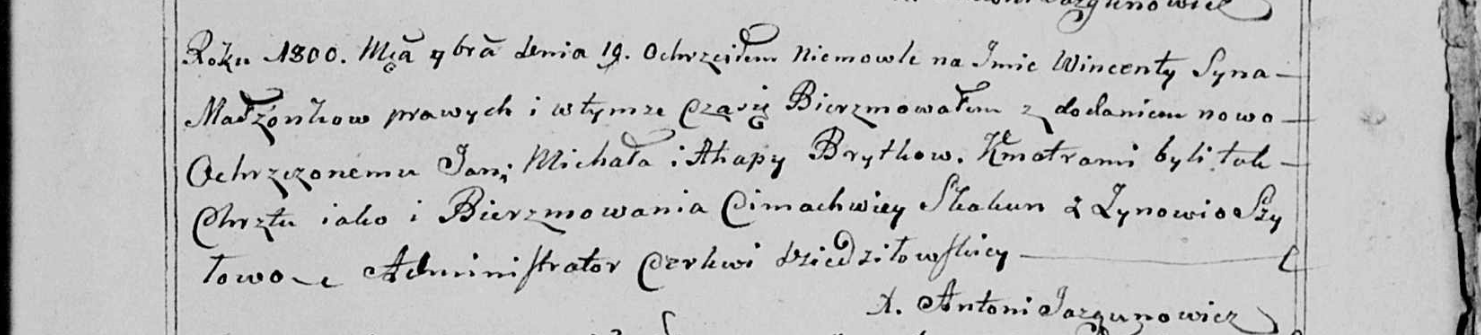 Jazgunowicz
Roku 1800. Mca 7bra dnia 19. Ochrzciłem Niemowle na Imie Wincenty Syna
Małżonkow prawych i w tymże Czasię Bierzmowałem z dodaniem nowo
Ochrzczonemu Jan, Michała i Ahapy Brytkow. Kmotrami byli tak
Chrztu iako i Bierzmowania Cimachwiey Skakun z Zynowio Szy
towo Administrator Cerkwi Dziedziłowskiey
X. Antoni Jazgunowicz